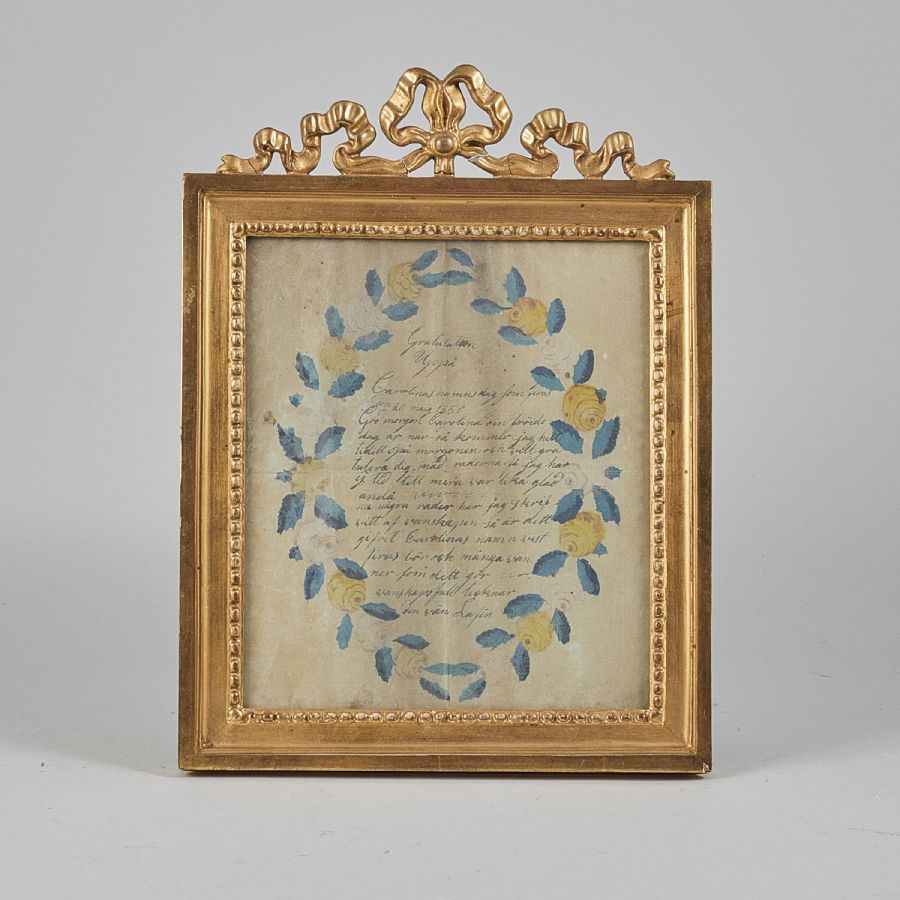 Gratulation
Uppå
Carolinas namnsdag som firas
den 20 maig 1860
Go morgon Carolina din fröide
dag är nar så kommer jag hit
tiditt på morgonen och vill gra
tulera dig, med raderna så jag har
ej tid till mera var lika glad
ändå
nu några rader har jag skrit
vitt af vänskapen så är ditt
gifvit Carolinas namn vist
firas bör och många vän
ner som ditt gör
vänskapsfull tigknar
din vän Lajin